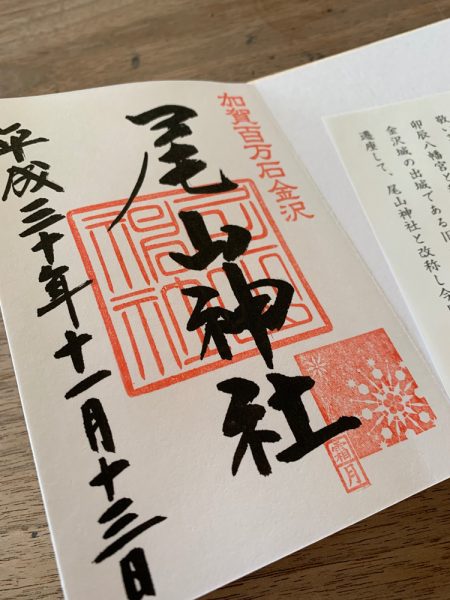 敬い
卯辰八幡宮と
金沢城の出城である旧
遷座して、尾山神社と改称し今
加賀百万石金沢
尾山神社
霜月
平成三十年十一月十三日